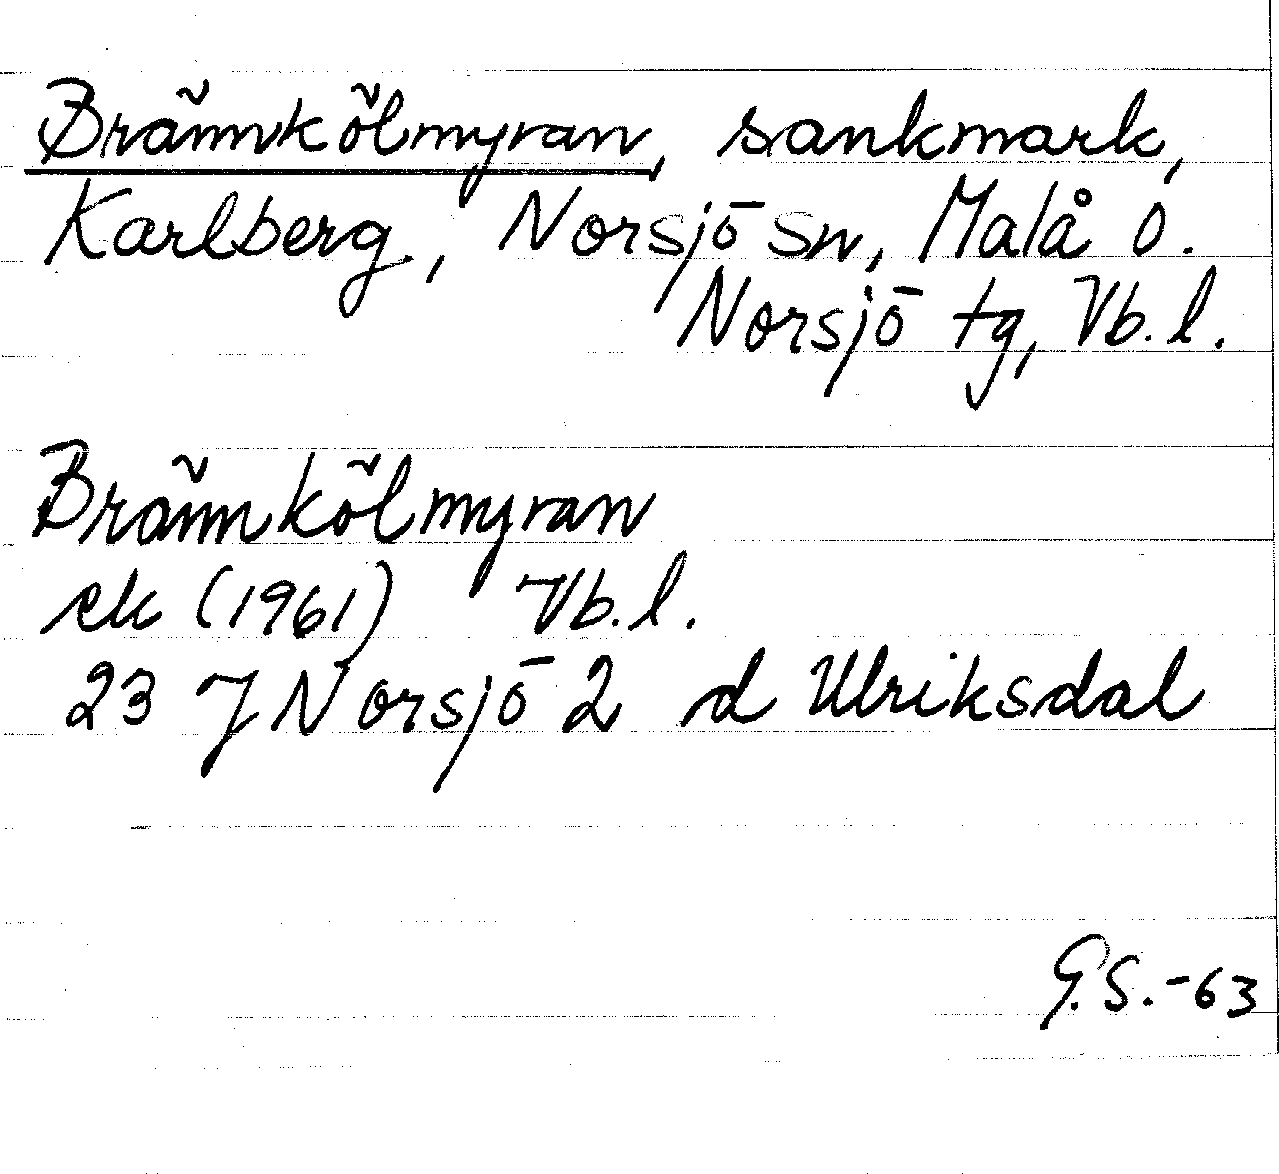 Brännkölmyran, sankmark,
Karlberg, Norsjö sn, Malå o.
Norsjö tg, Vb. l.
Brännkölmyran
ek (1961) Vb. l.
23 J Norsjö 2 d Ulriksdal
G.S.-63